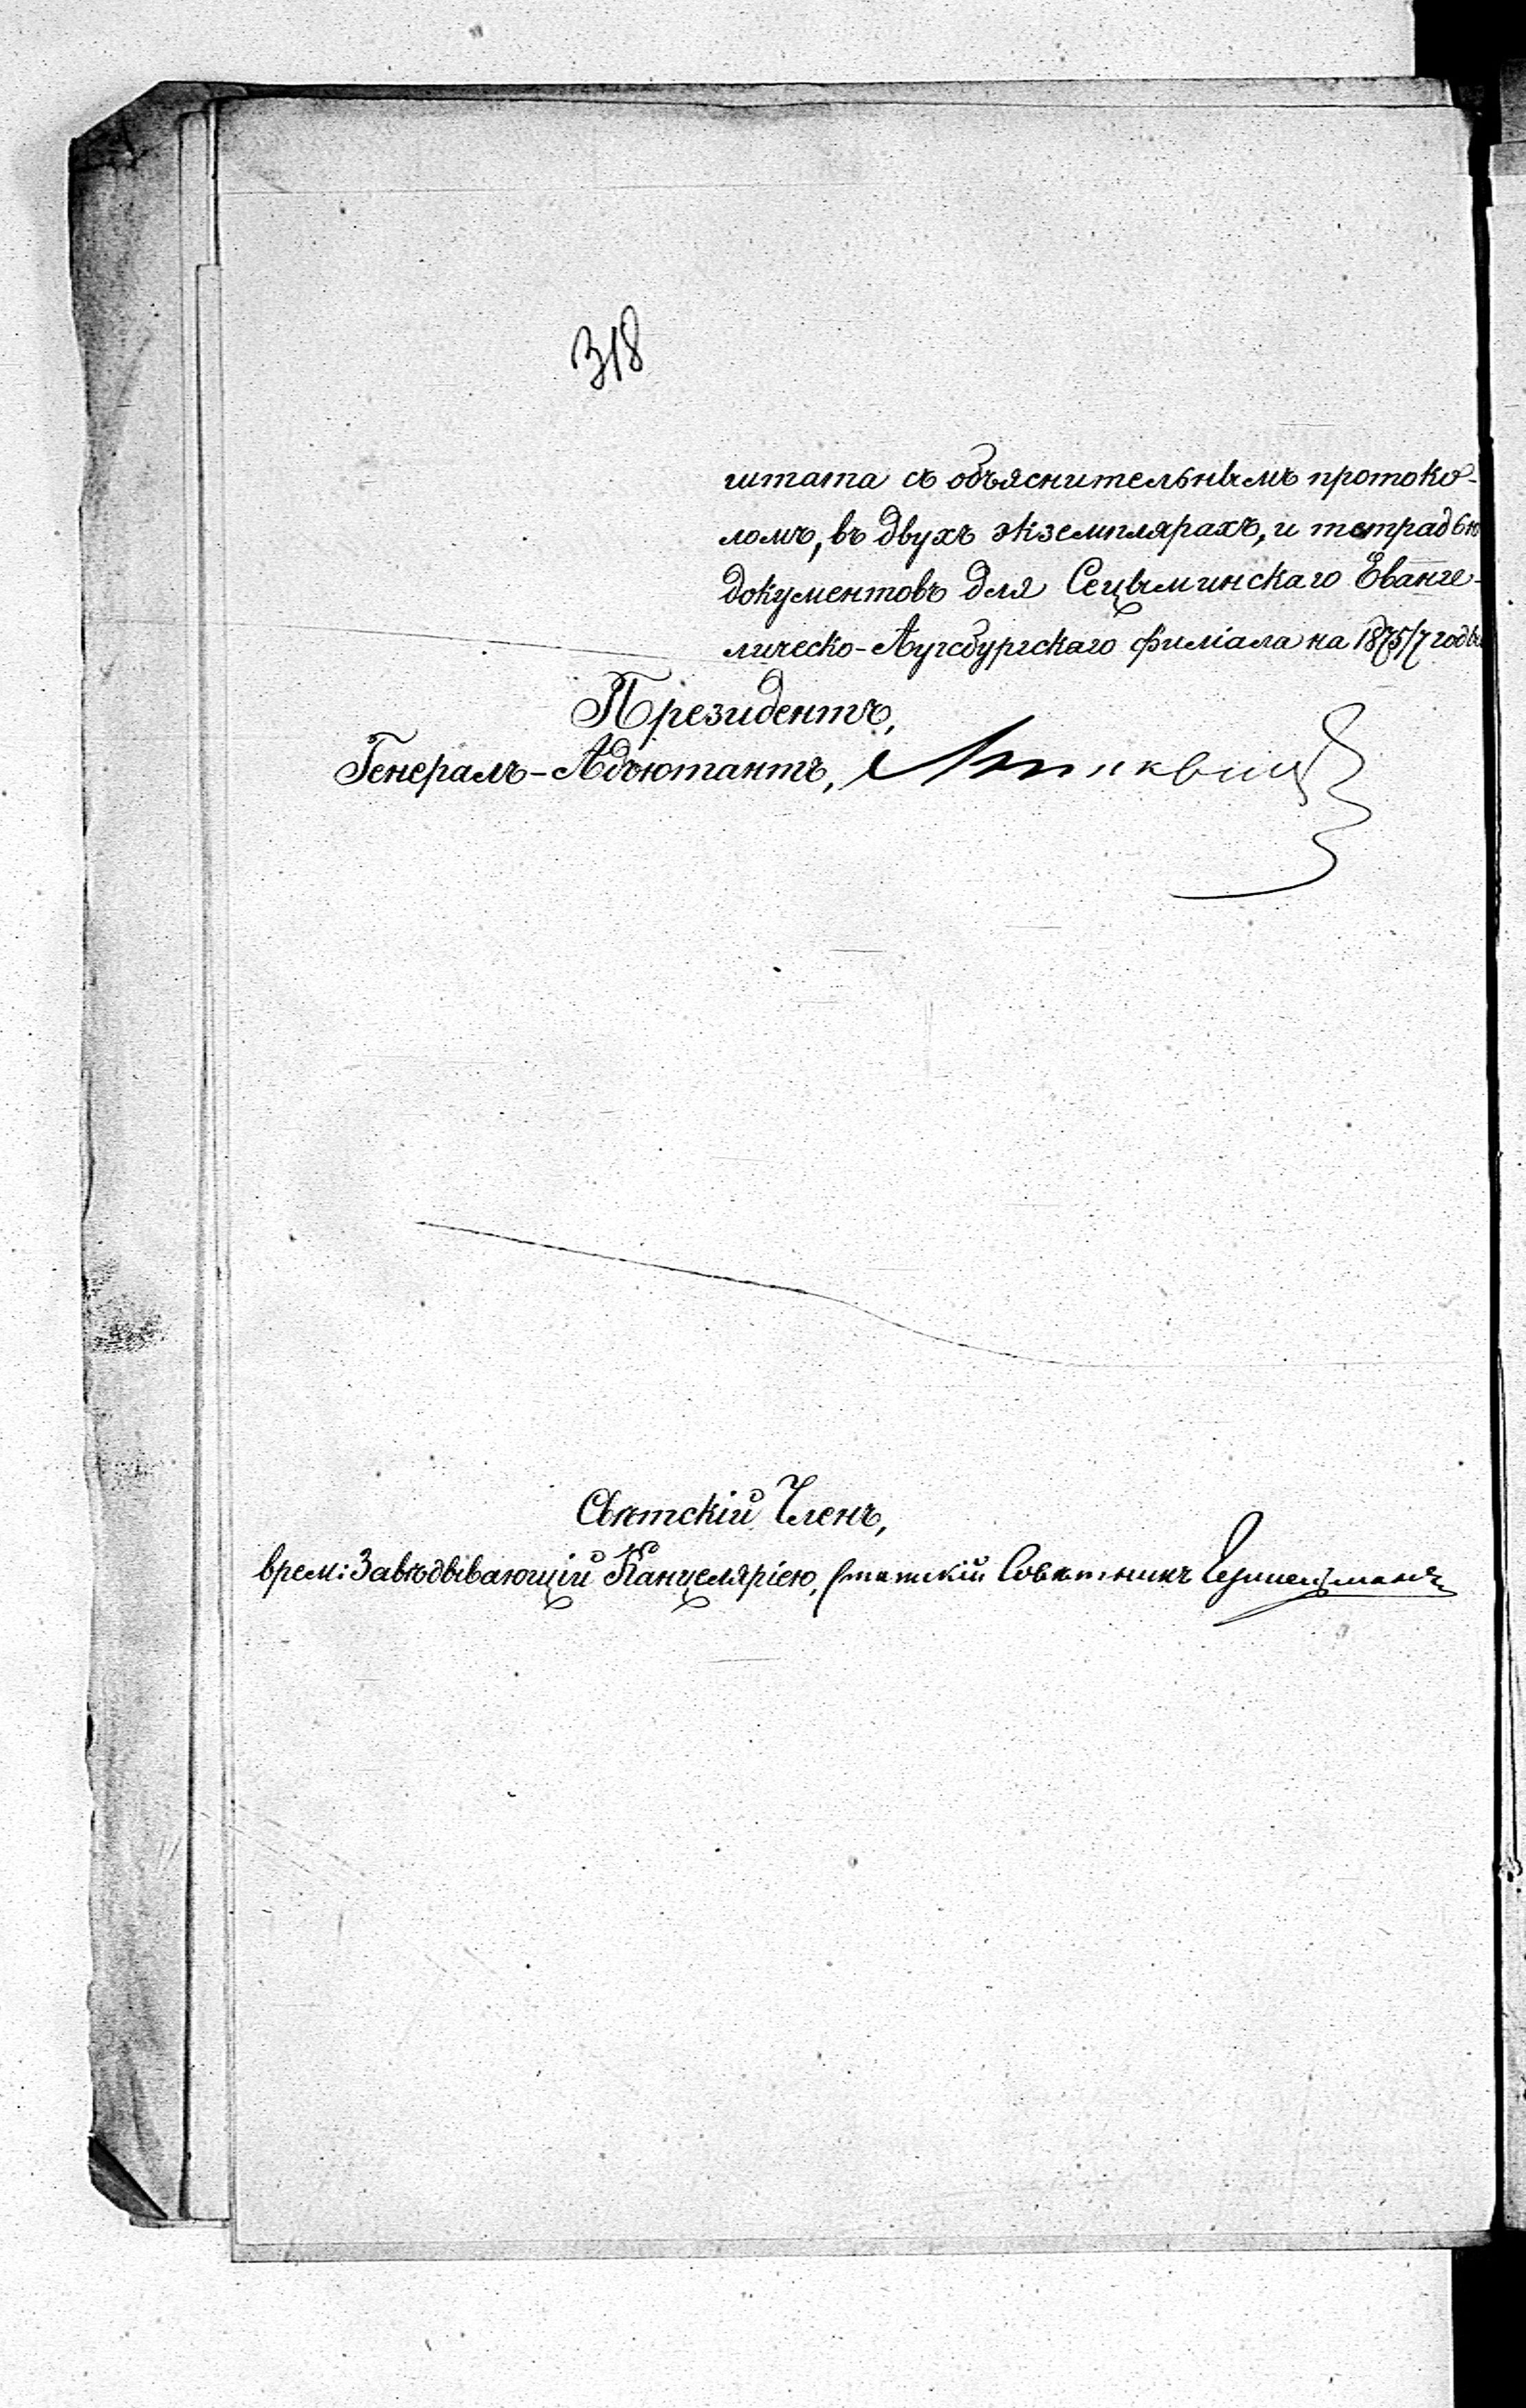 318
штата съ объяснительнымъ протоко-
ломъ, въ двухъ экземплярахъ, и тетрадью
документовъ для Сецыминскаго Еванге-
лическо-Аугсбургскаго филіала на 1875/7 годы
Президентъ,
Генералъ-Адъютантъ,
Свѣтскій Членъ,
врем: Завѣдывающій Канцеляріею, Статскій Совѣтникъ